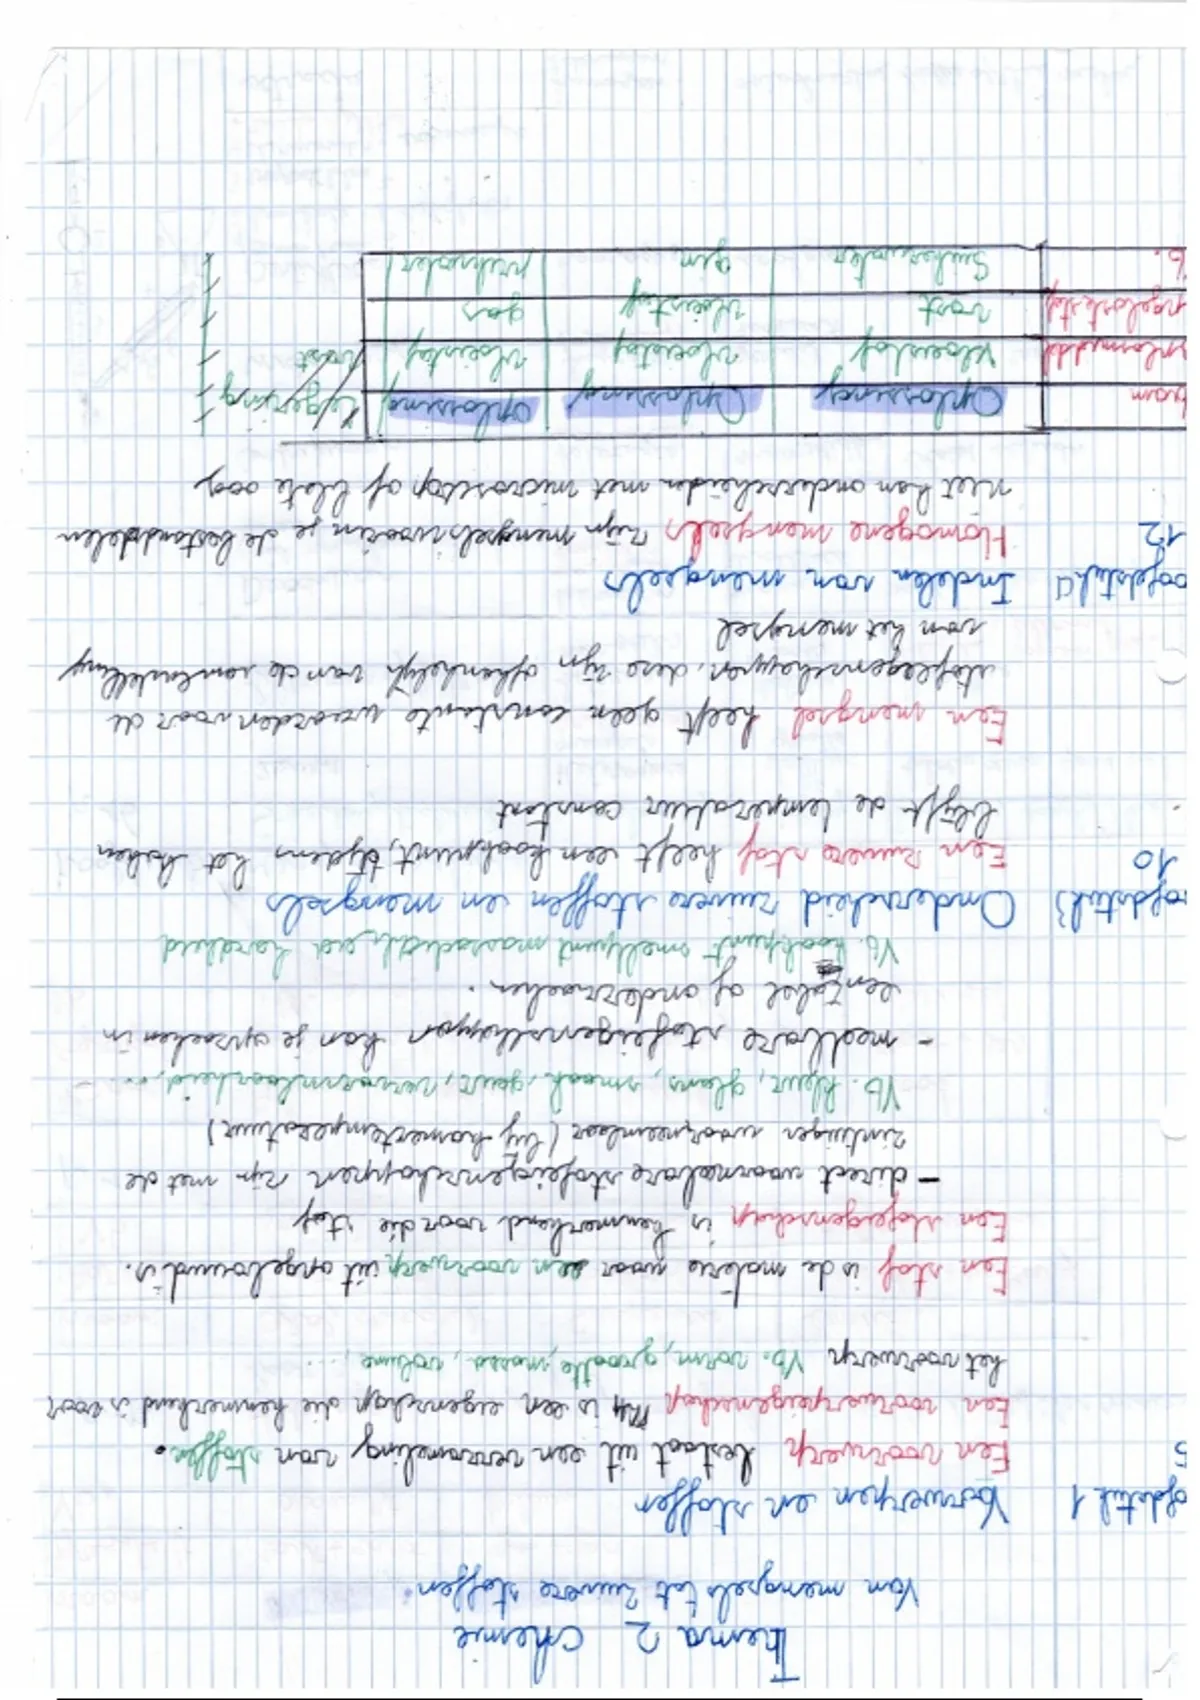 Thema 2 Chemie
Van mengsels tot zuivere stoffen.
ofdstuk 1 Voorwerpen en stoffen
5 Een voorwerp bestaat uit een verzameling van stoffen.
Een voorwerpeigenschap is een eigenschap die kenmerkend is voor
het voorwerp Vb. vorm, grootte, massa, volume, ...
Een stof is de materie waar een voorwerp uit opgebouwd is.
Een stofeigenschap is kenmerkend voor die stof
- direct waarneembare stofeigenschappen zijn met de
zintuigen waarneembaar (bij kamertemperatuur)
Vb. kleur, glans, smaak, geur, vervormbaarheid, ...
- meetbare stofeigenschappen kan je opzoeken in
een tabel of onderzoeken.
Vb. kookpunt smeltpunt massadichtheid hardheid
ofdstuk 3 Onderscheid zuivere stoffen en mengsels
10 Een zuivere stof heeft een kookpunt, tijdens het koken
blijft de temperatuur constant
Een mengsel heeft geen constante waarden voor de
stofeigenschappen, deze zijn afhankelijk van de samenstelling
van het mengsel
oofdstuk 4 Indelen van mengsels
12 Homogene mengsels zijn mengsels waarin je de bestanddelen
niet kan onderscheiden met microscoop of blote oog
naam Oplossing Oplossing oplossing legering
plosmiddel vloeistof vloeistof vloeistof vast
pgeloste stof vast vloeistof gas
b. Suikerwater gin pruikwater